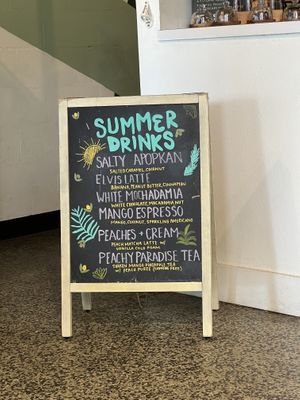 SUMMER
DRINKS
SALTY APOPKAN
SALTED CARAMEL, COCONUT
ELVIS LATTE
BANANA, PEANUT BUTTER, CINNAMON
WHITE MOCHADAMIA
WHITE CHOCOLATE, MACADAMIA NUT
MANGO ESPRESSO
MANGO, COCONUT, SPARKLING AMERICANO
PEACHES + CREAM
PEACH MATCHA LATTE W/
VANILLA COLD FOAM
PEACHY PARADISE TEA
SHAKEN MANGO PINEAPPLE TEA
W/ PEACH PUREE (CAFFEINE FREE)